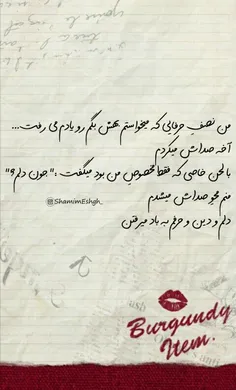 من نصف حرفایی که میخواستم بهش بگم رو یادم می رفت...
آخه صداش میکردم
با لحن خاصی که فقط مخصوص من بود میگفت :"جون دلم؟"
منم محو صداش میشدم
دلم و دین و حرفم به باد میرفتن
@ShamimEshgh_
Burgundy
Item.